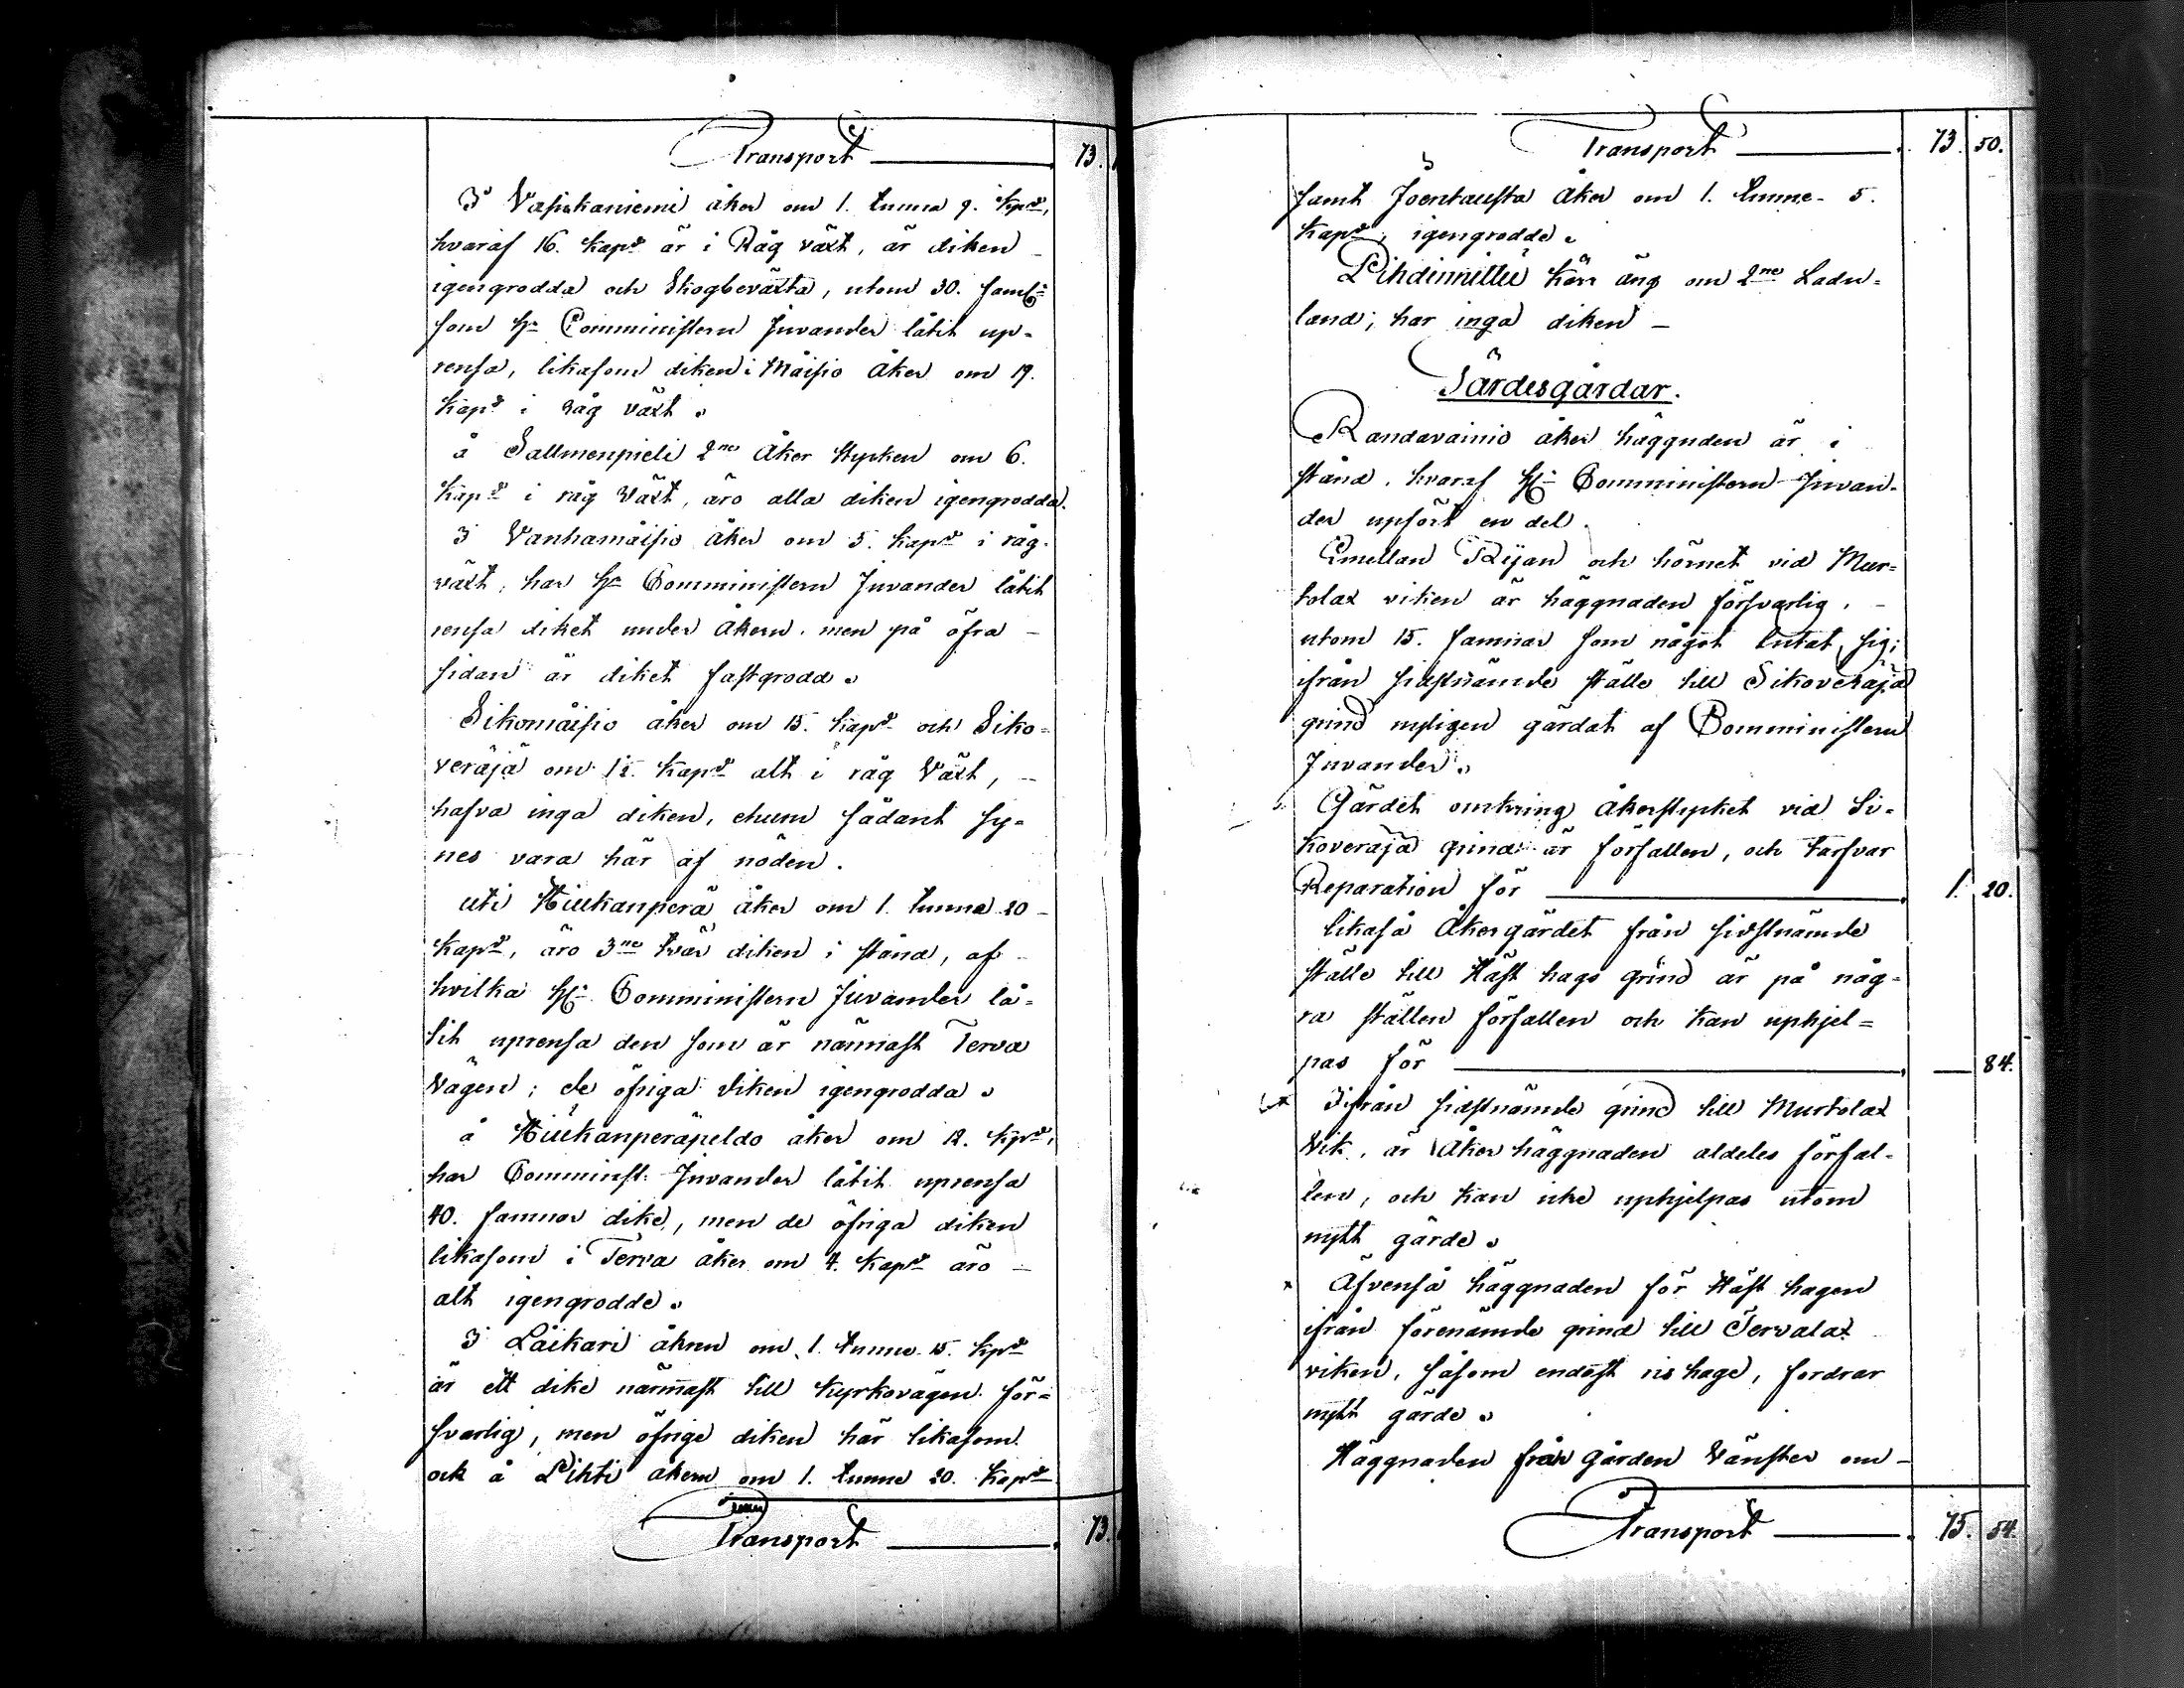 Transport 73.
I Vasikaniemi åker om 1. tunna 9. kapr,
hvaraf 16. kapr är i Råg växt, är diken
igengrodda och Skogbeväxta, utom 30. famlr
som Hr Comministern Juvander låtit up-
rensa, likasom diken i Måisio åker om 19.
kapr i råg växt.
å Sallmenpieli 2ne åker stycken om 6.
kapr i råg växt, äro alla diken igengrodda.
I Vanhamåisio åker om 5. kapr i råg-
växt, har Hr Comministern Juvander låtit
rensa diket under åkern, men på öfra
sidan är diket fastgrodd.
Sikomåisio åker om 15. kapr och Siko-
veräjä om 12. kapr alt i råg växt,
hafva inga diken, ehuru sådant sy-
nes vara här af nöden.
uti Hiukanperä åker om 1. tunna 20
kapr, äro 3ne tvär diken i stånd, af
hvilka Hr Comministern Juvander lå-
tit uprensa den som är närmast Terva
Vägen; de öfriga diken igengrodda.
å Hiukanperäpeldo åker om 12. kpr,
har Comminist: Juvander låtit uprensa
40. famnar dike, men de öfriga diken
likasom i Terva åker om 4. kapr äro
alt igengrodde.
I Låikari åkren om 1. tunna 15. kpr
är ett dike närmast till kyrkovägen för-
svarlig, men öfrige diken här likasom
ock å Pihti åkern om 1. tunna 20. kapr
Transport 73.
Transport 73. 50.
samt Joentausta åker om 1. tunne 5.
kapr, igengrodde.
Pihdinnittu kärr äng om 2ne Ladu-
land; har inga diken
Gärdesgårdar.
Randavainio åker häggnden är i
stånd, hvaraf Hr Comministern Juvan-
der upfört en del.
Emellan Rijan och hörnet vid Mur-
tolax viken är häggnaden försvarlig,
utom 15. famnar som något lutat sig;
ifrån sidstnämde ställe till Sikoveräjä
grind nyligen gärdat af Comministern
Juvander.
Gärdet omkring åkerstycket vid Si-
koveräjä grind är förfallen, och tarfvar
Reparation för 1. 20.
likaså Åkergärdet från sidstnämde
ställe till Häst hags grind är på någ-
ra ställen förfallen och kan uphjel-
pas för — 84.
Ifrån sidstnämde grind till Murtolax
Vik, är Åker häggnaden aldeles förfal-
len, och kan icke uphjelpas utom
nytt gärde.
Äfvenså häggnaden för Häst hagen
ifrån förenämde grind till Tervalax
viken, såsom endast ris hage, fordrar
nytt gärde.
Häggnaden från gården Vänster om
Transport 75. 54.